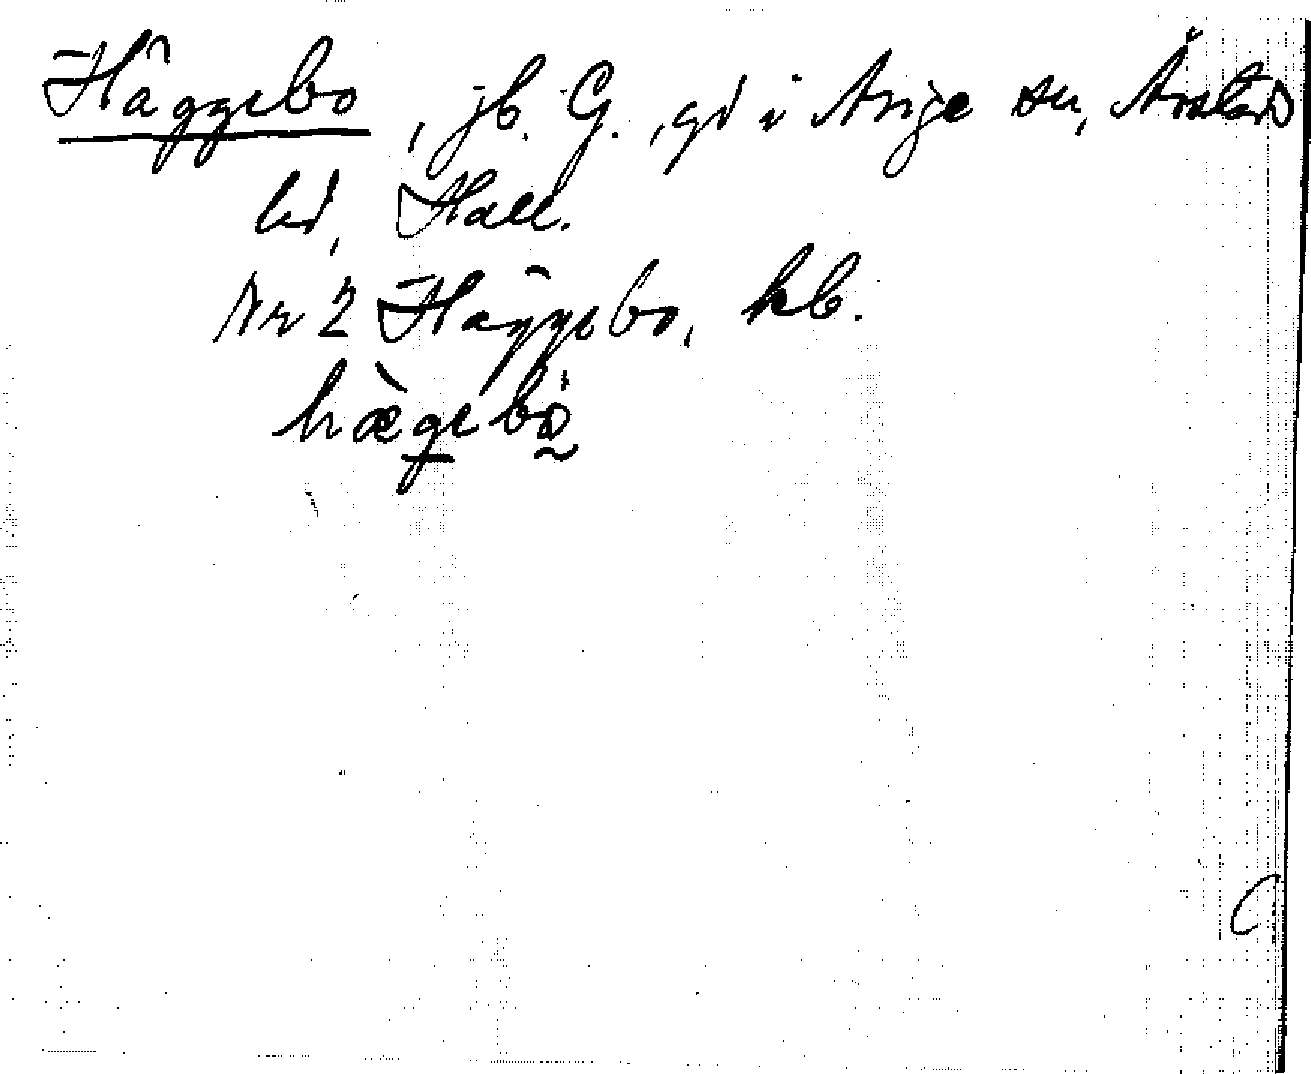 Häggebo, jb. G., gd i Asige sn, Årstads
hd, Hall.
Nr 2 Häggebo, kb.
hæ̀gebo̰̍
C